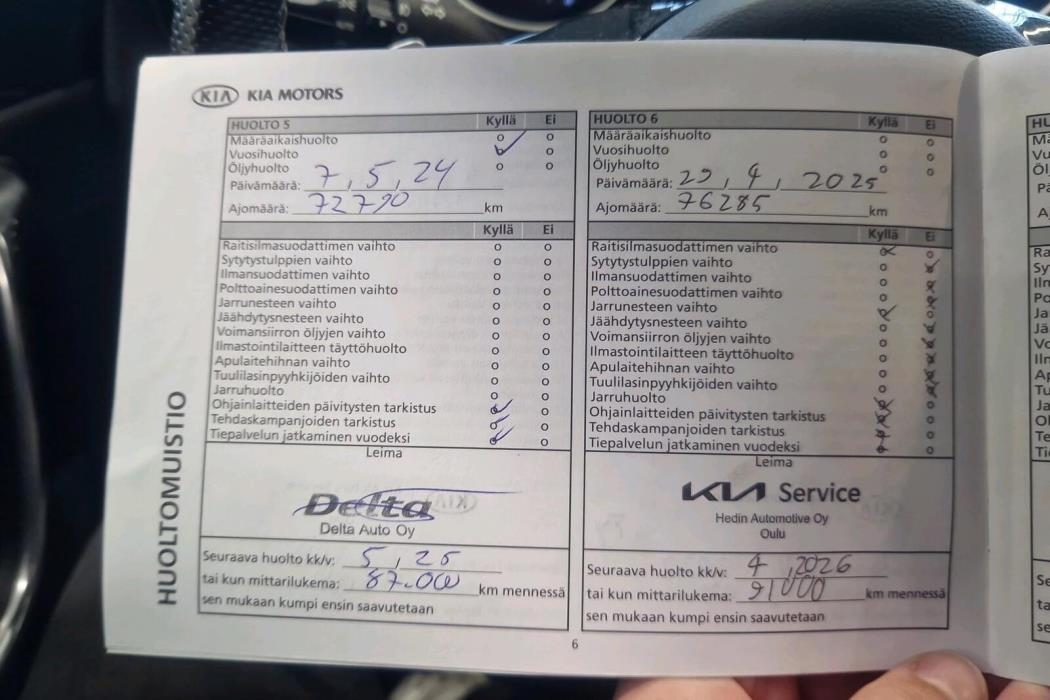 KIA KIA MOTORS
HUOLTO 5 Kyllä Ei
Määräaikaishuolto
Vuosihuolto
Öljyhuolto
Päivämäärä: 7,5,24
Ajomäärä: 72790 km
Kyllä Ei
Raitisilmasuodattimen vaihto
Sytytystulppien vaihto
Ilmansuodattimen vaihto
Polttoainesuodattimen vaihto
Jarrunesteen vaihto
Jäähdytysnesteen vaihto
Voimansiirron öljyjen vaihto
Ilmastointilaitteen täyttöhuolto
Apulaitehihnan vaihto
Tuulilasinpyyhkijöiden vaihto
Jarruhuolto
Ohjainlaitteiden päivitysten tarkistus
Tehdaskampanjoiden tarkistus
Tiepalvelun jatkaminen vuodeksi
Leima
Delta
Delta Auto Oy
Seuraava huolto kk/v: 5,25
tai kun mittarilukema: 87.000 km mennessä
sen mukaan kumpi ensin saavutetaan
HUOLTO 6 Kyllä Ei
Määräaikaishuolto
Vuosihuolto
Öljyhuolto
Päivämäärä: 29,4,2025
Ajomäärä: 76285 km
Kyllä Ei
Raitisilmasuodattimen vaihto
Sytytystulppien vaihto
Ilmansuodattimen vaihto
Polttoainesuodattimen vaihto
Jarrunesteen vaihto
Jäähdytysnesteen vaihto
Voimansiirron öljyjen vaihto
Ilmastointilaitteen täyttöhuolto
Apulaitehihnan vaihto
Tuulilasinpyyhkijöiden vaihto
Jarruhuolto
Ohjainlaitteiden päivitysten tarkistus
Tehdaskampanjoiden tarkistus
Tiepalvelun jatkaminen vuodeksi
Leima
KIA Service
Hedin Automotive Oy
Oulu
Seuraava huolto kk/v: 4,2026
tai kun mittarilukema: 91000 km mennessä
sen mukaan kumpi ensin saavutetaan
HUOLTOMUISTIO
6